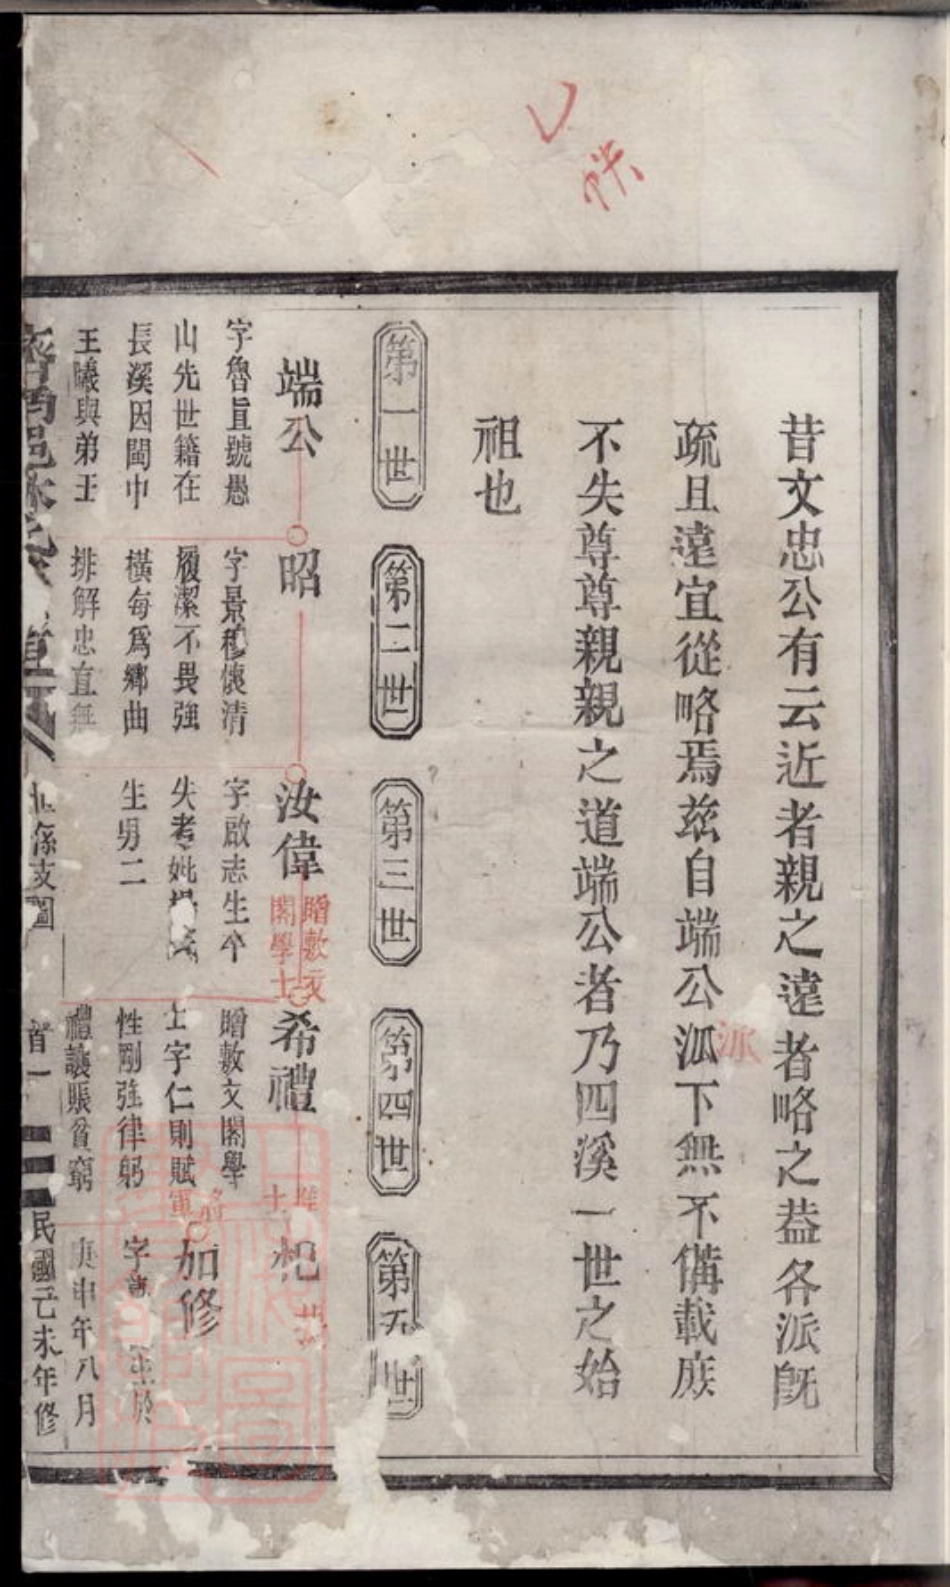 昔文忠公有云近者親之遠者略之葢各派旣
疏且遠宜從略焉茲自端公泒下無不備載庶
派
不失尊尊親親之道端公者乃四溪一世之始
祖也
第一世
第二世
第三世
第四世
第五世
端公
字魯直號愚
山先世籍在
長溪因閩中
王曦與弟王
昭
字景穆懐清
履潔不畏強
橫每爲鄉曲
排解忠直無
汝偉
贈敷文
閣學士
字啟志生卒
失考妣
生男二
希禮
贈敷文閣學
士字仁則賦
性剛強律躬
禮讓賑貧窮
杞
加修
將
軍
字
生於
庚申年八月
世系支圖
首一
民國己未年修